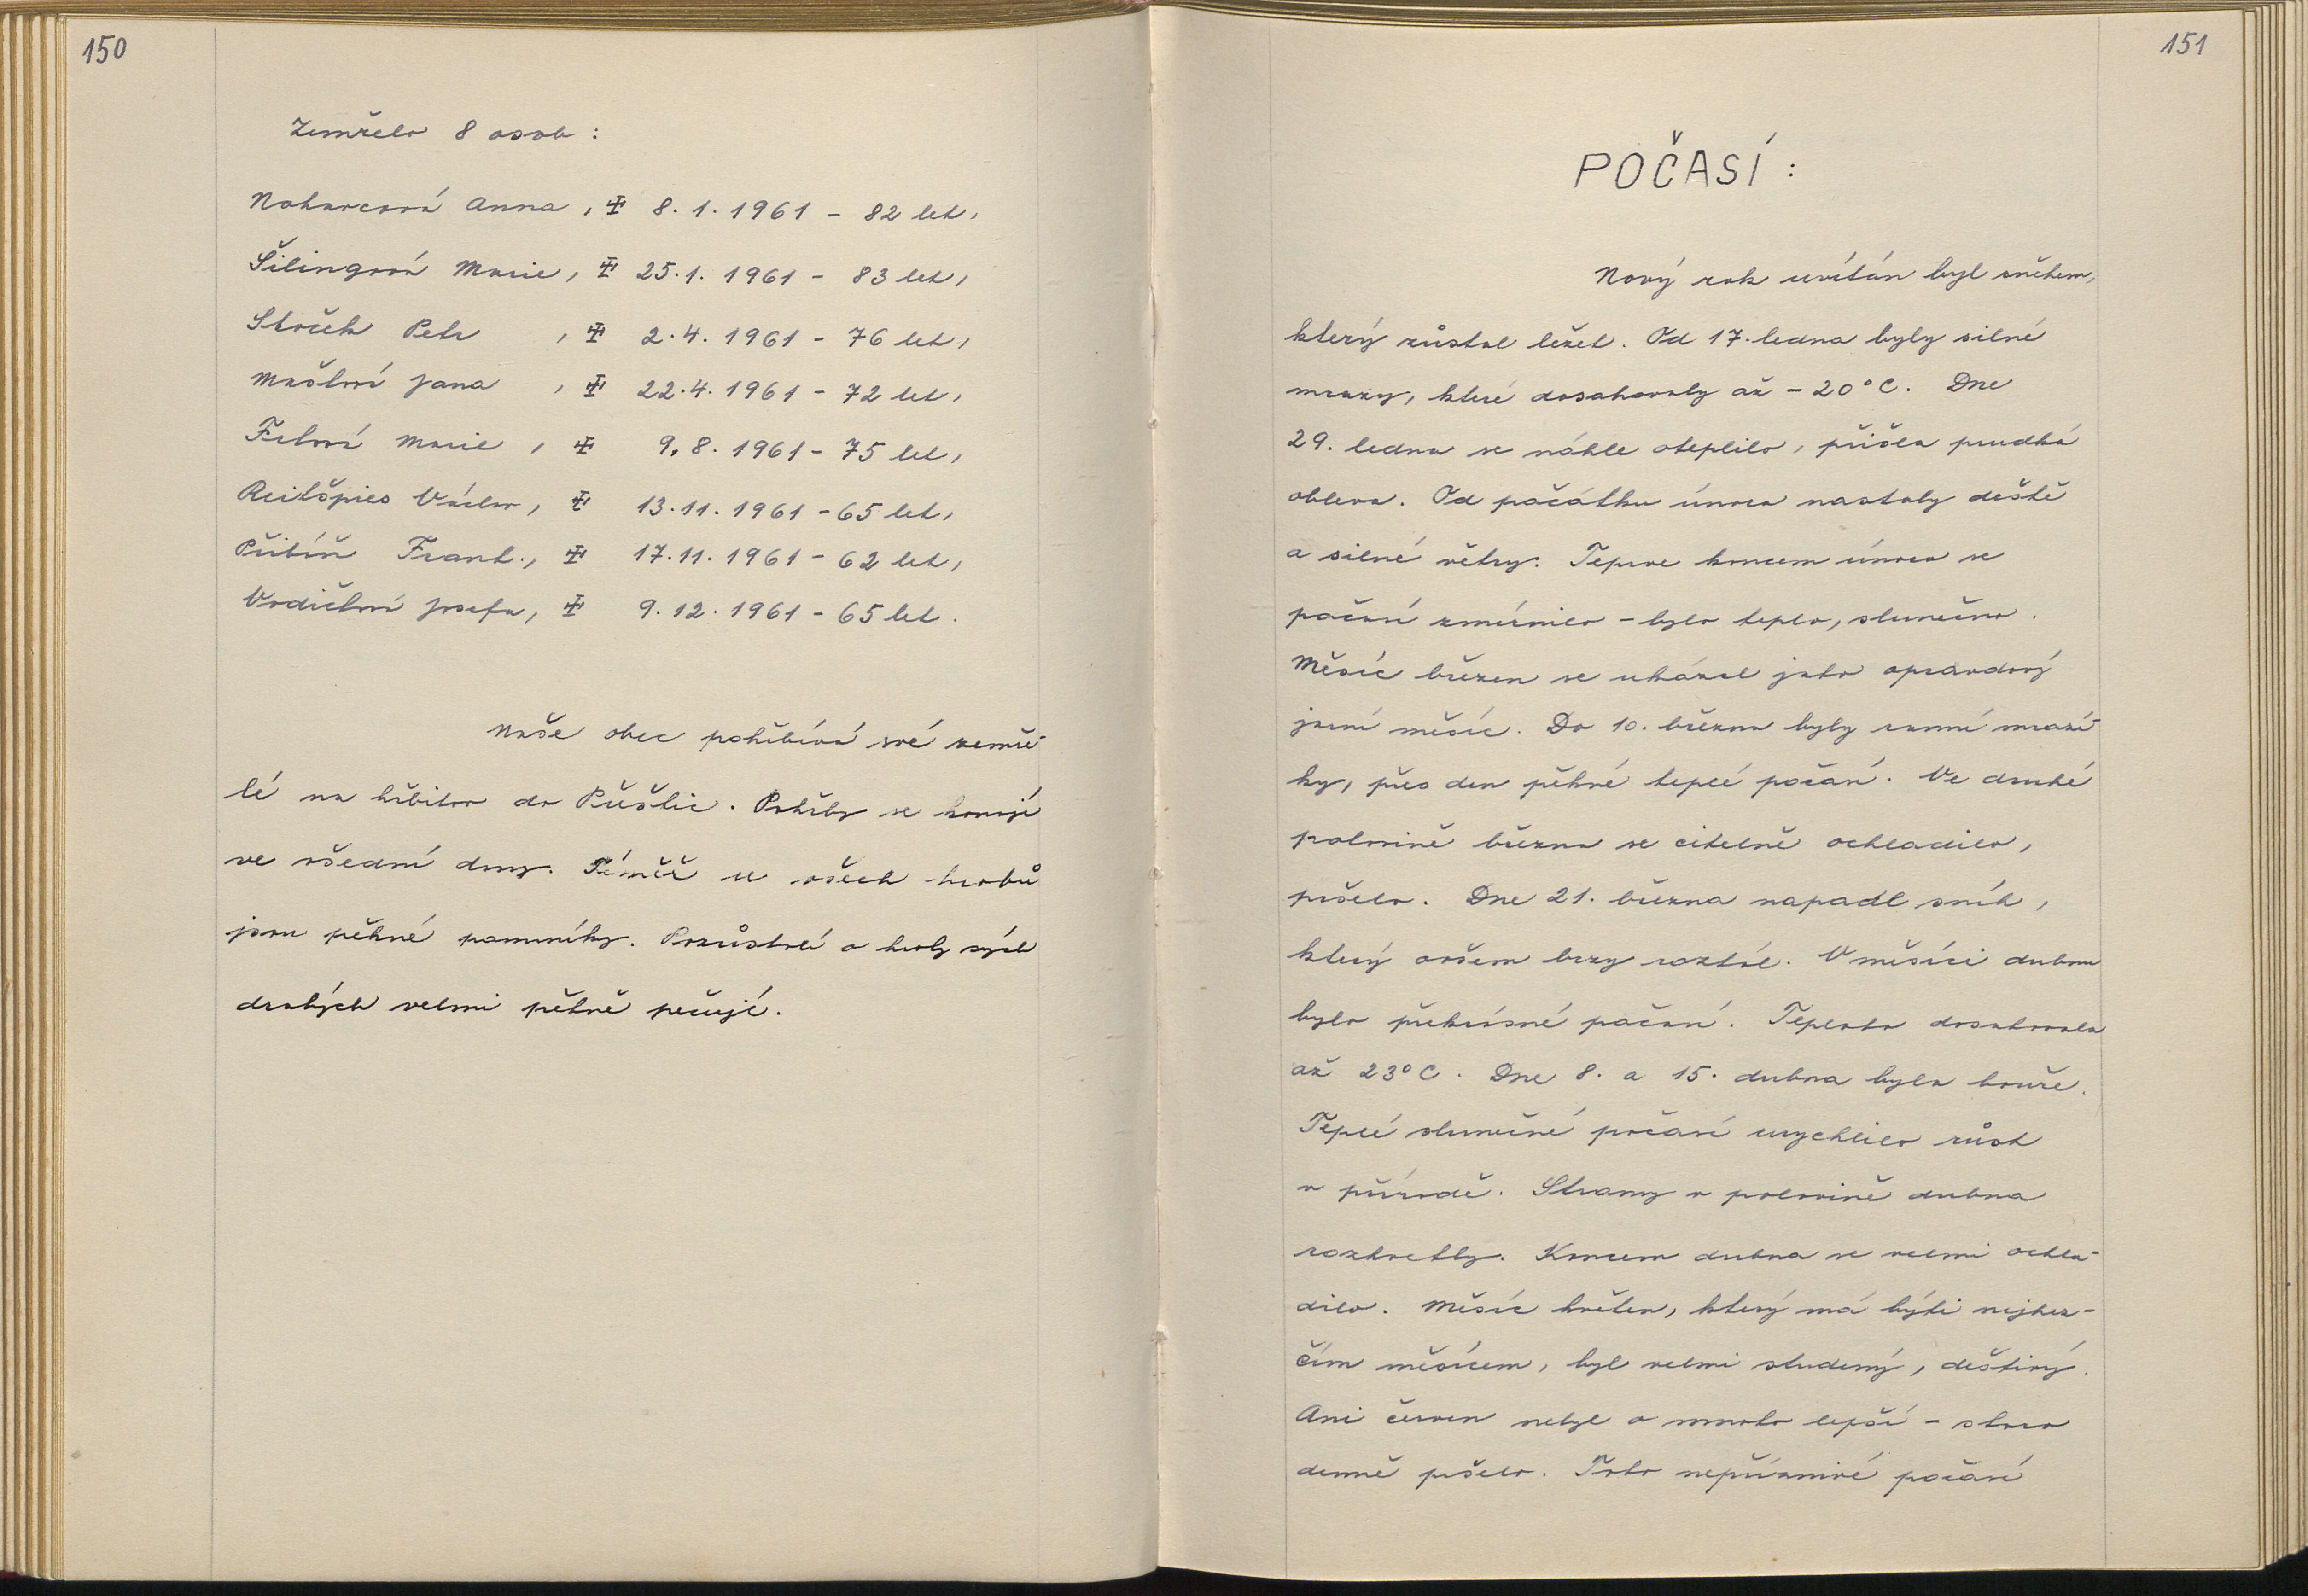 150
Zemřelo 8 osob :
Noharcová Anna, ✠ 8. 1. 1961 - 82 let,
Šilingová Marie, ✠ 25. 1. 1961 - 83 let,
Petr , ✠ 2. 4. 1961 - 76 let,
Jana , ✠ 22. 4. 1961 - 72 let,
Marie , ✠ 9. 8. 1961 - 75 let,
Reitšpies Václav, ✠ 13. 11. 1961 - 65 let,
Frant., ✠ 17. 11. 1961 - 62 let,
Vodičková Josefa, ✠ 9. 12. 1961 - 65 let.
Naše obec pohřbívá své zemře-
lé na hřbitov do Přešťic. Pohřby se konají
ve všední dny. Téměř u všech hrobů
jsou pěkné pomníky. Pozůstalí o hroby svých
drahých velmi pěkně pečují.
151
POČASÍ :
Nový rok uvítán byl sněhem,
který zůstal ležet. Od 17. ledna byly silné
mrazy, které dosahovaly až - 20° C. Dne
29. ledna se náhle oteplilo, přišla prudká
obleva. Od počátku února nastaly deště
a silné větry. Teprve koncem února se
počasí zmírnilo - bylo teplo, slunečno.
Měsíc březen se ukázal jako opravdový
jarní měsíc. Do 10. března byly ranní mrazí-
ky, přes den pěkné teplé počasí. Ve druhé
polovině března se citelně ochladilo,
pršelo. Dne 21. března napadl sníh,
který ovšem brzy roztál. V měsíci dubnu
bylo překrásné počasí. Teplota dosahovala
až 23° C. Dne 8. a 15. dubna byla bouře.
Teplé slunečné počasí urychlilo růst
v přírodě. Stromy v polovině dubna
rozkvetly. Koncem dubna se velmi ochla-
dilo. Měsíc květen, který má býti nejhez-
čím měsícem, byl velmi studený, deštivý.
Ani červen nebyl o mnoho lepší - skoro
denně pršelo. Toto nepříznivé počasí